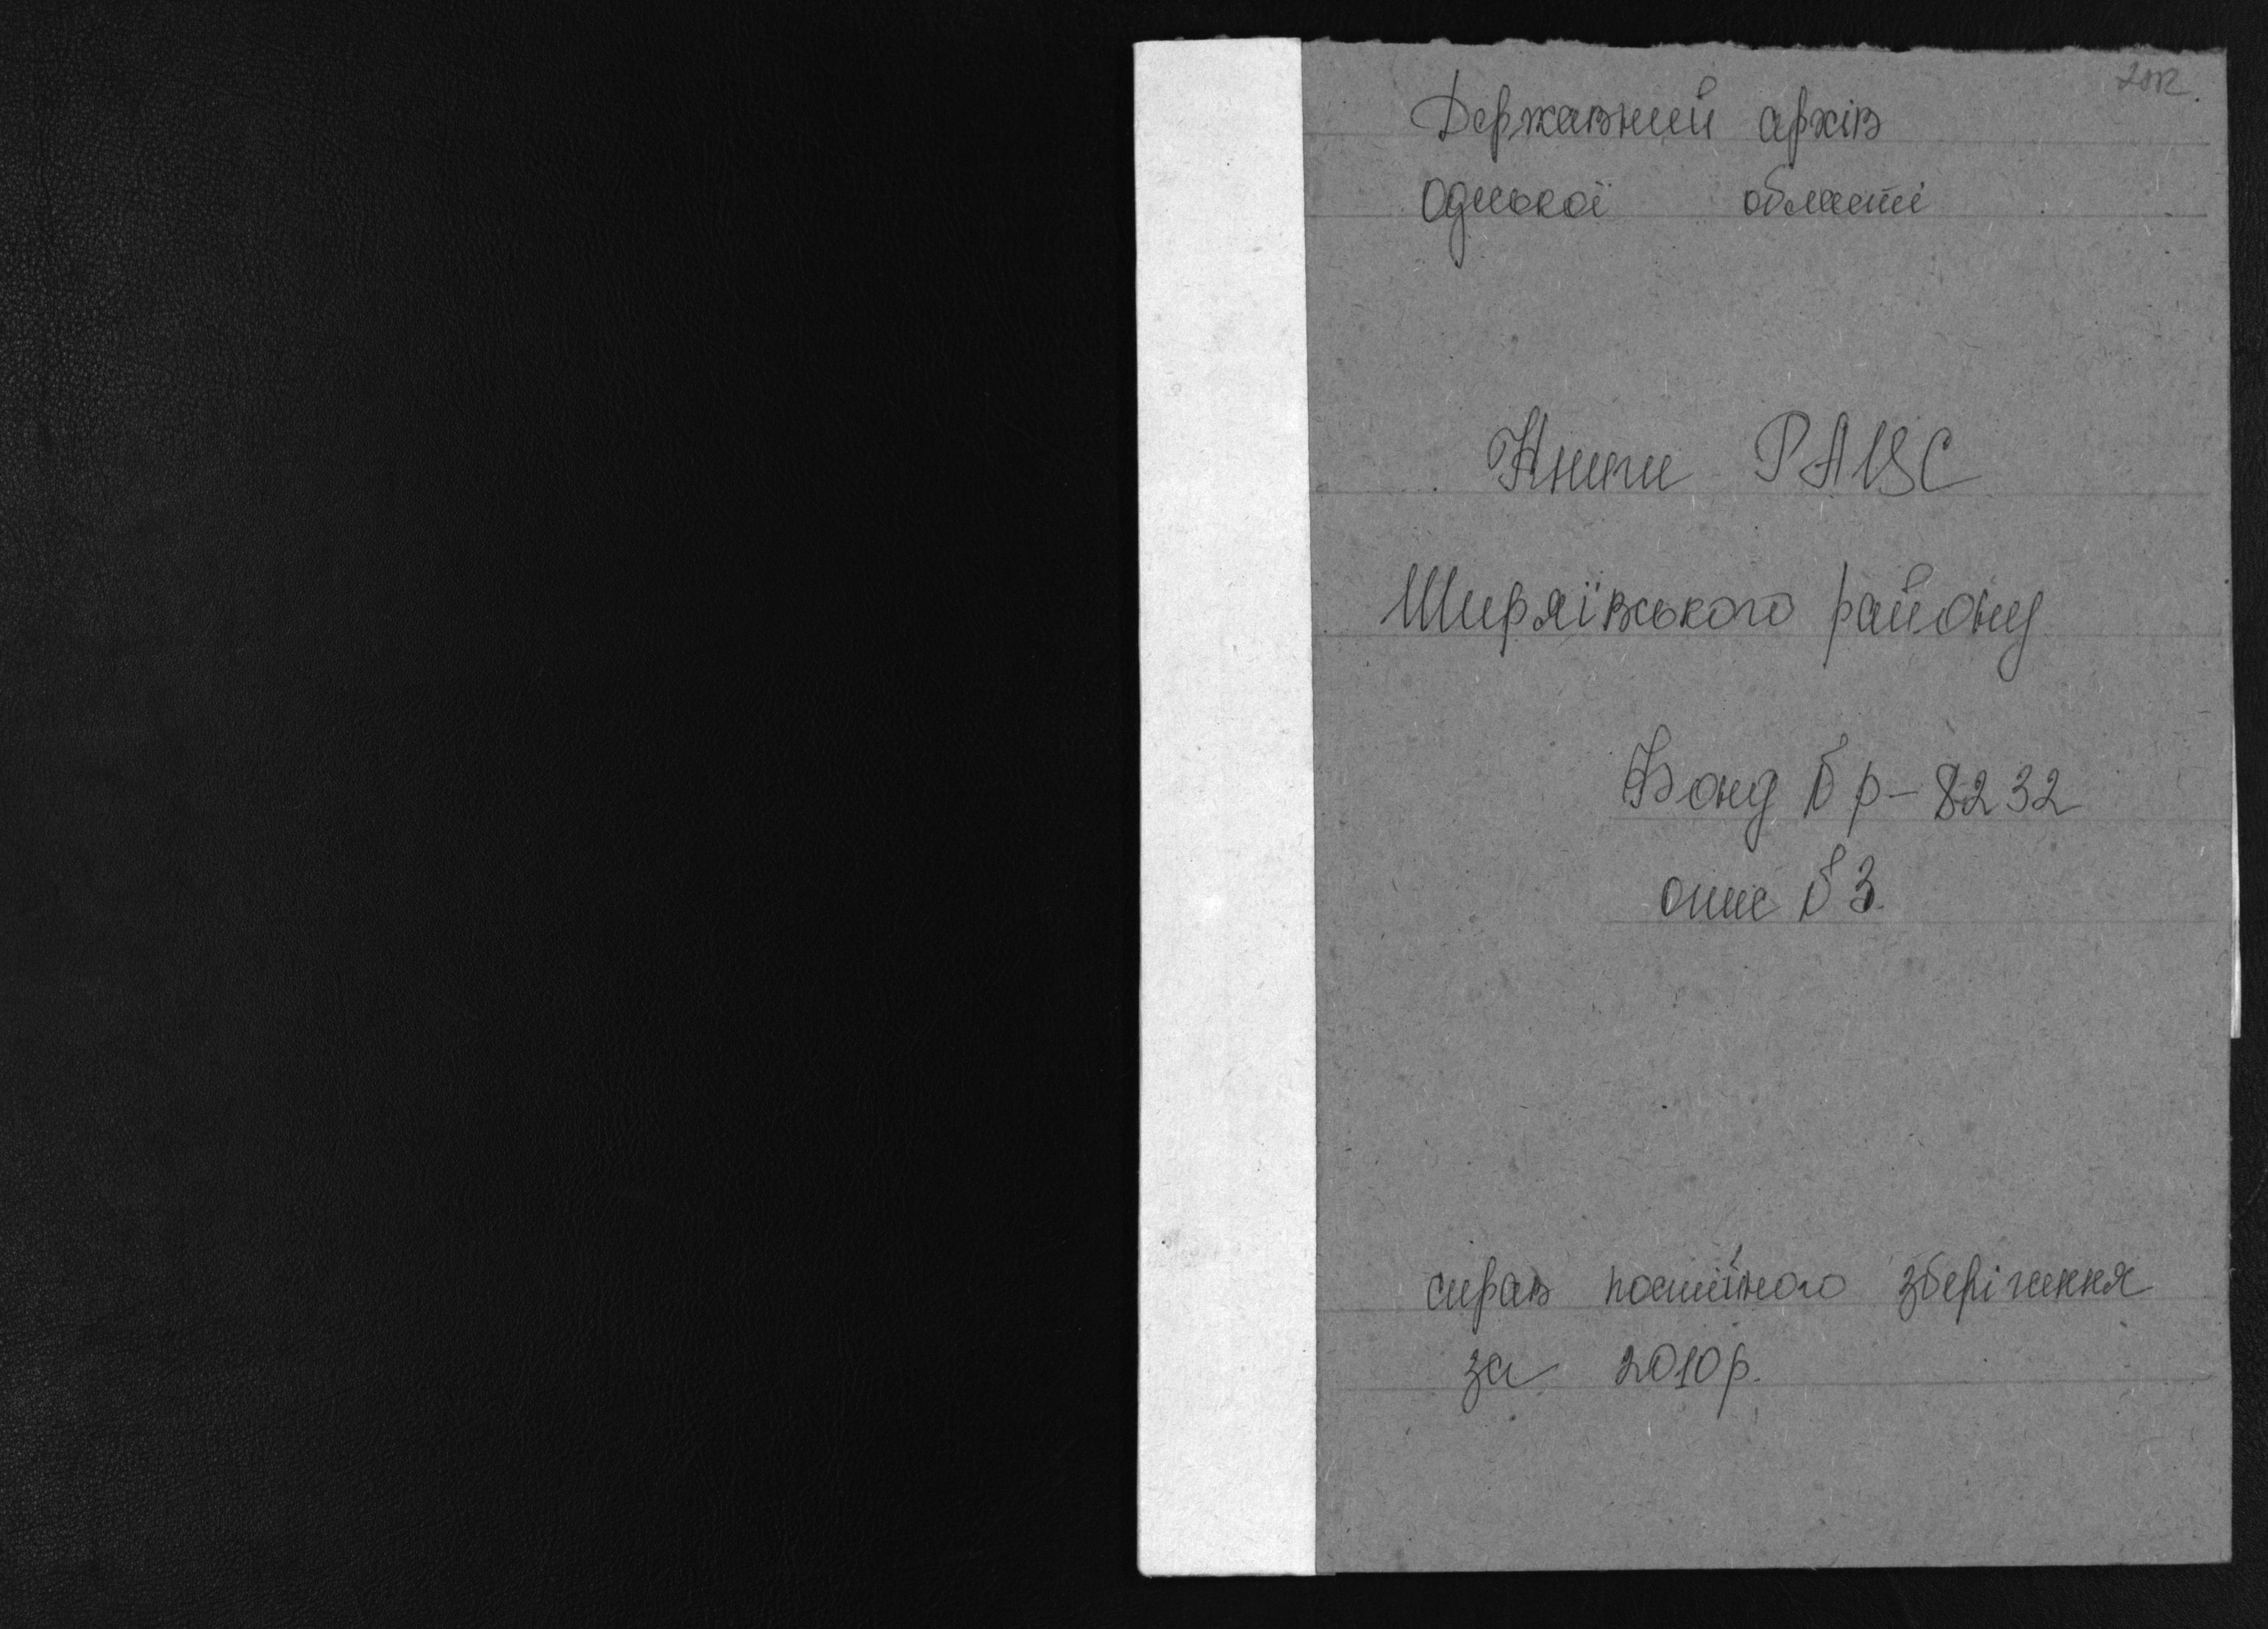 2012.
Державний архів
Одеської області
Книги РАЦС
Ширяївського району
Фонд № Р-8232
опис № 3.
справ постійного зберігання
за 2010 р.